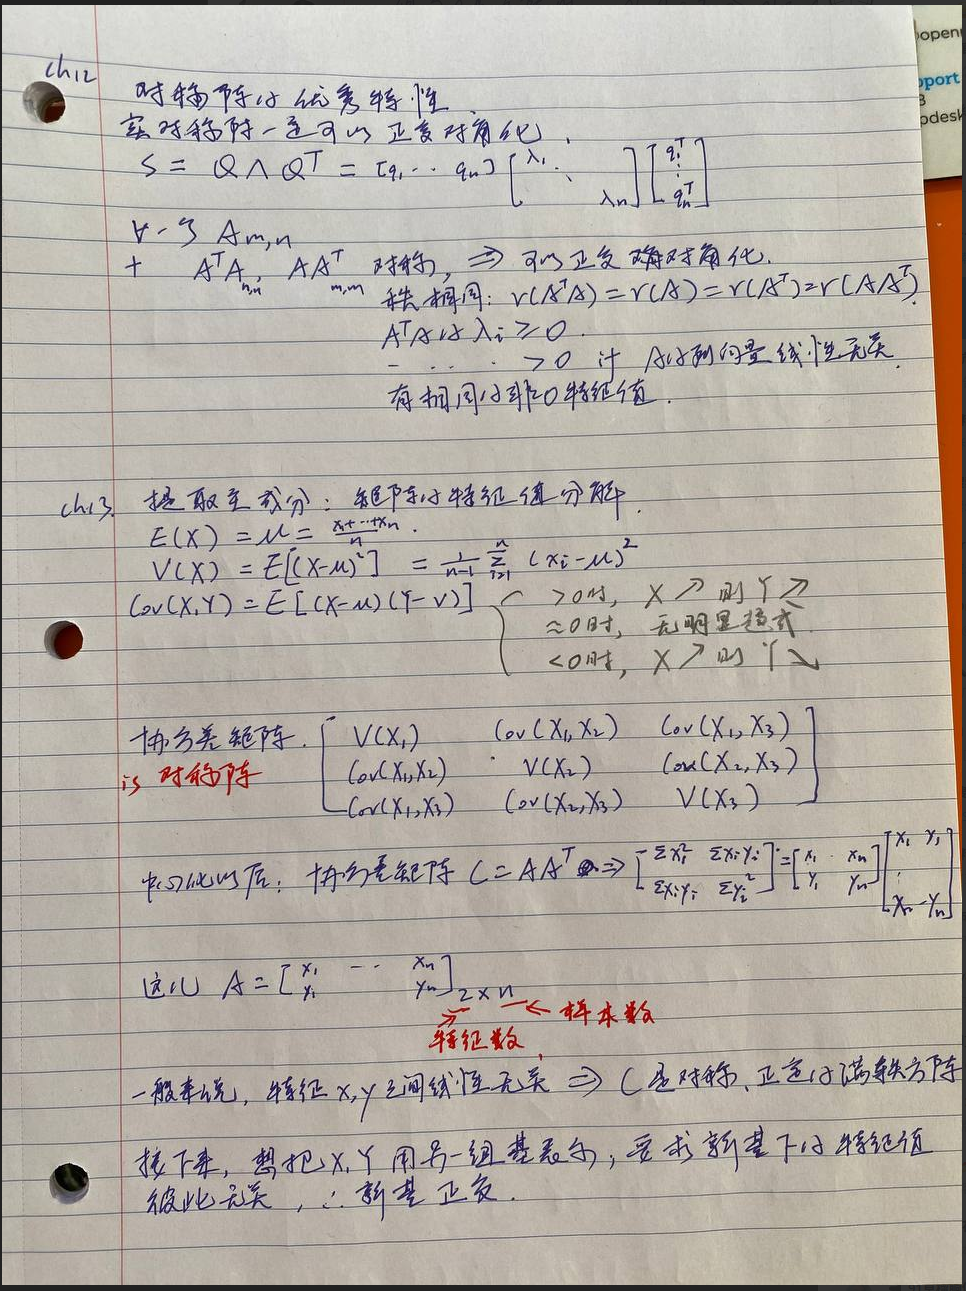 ch12
对称阵的优秀特性
实对称阵一定可以正交对角化.
S = QΛQᵀ = [q₁ ·· qₙ] [λ₁ ⋱ λₙ] [q₁ᵀ ⋮ qₙᵀ]
∀一个 Aₘ,ₙ
+ AᵀA n,n, AAᵀ m,m 对称, ⇒ 可以正交对角化.
秩相同: r(AᵀA) = r(A) = r(Aᵀ) = r(AAᵀ)
AᵀA的λᵢ ≥ 0.
- .. . · > 0 if A的列向量线性无关.
有相同的非0特征值.
ch13. 提取主成分: 矩阵的特征值分解.
E(X) = μ = (x₁+···+xₙ)/n.
V(X) = E[(X-μ)²] = 1/(n-1) Σᵢ₌₁ⁿ (xᵢ-μ)²
Cov(X,Y) = E[(X-μ)(Y-ν)] { >0时, X↗则Y↗
≈0时, 无明显模式
<0时, X↗则Y↘
协方差矩阵. [ V(X₁) Cov(X₁,X₂) Cov(X₁,X₃)
is 对称阵 Cov(X₁,X₂) V(X₂) Cov(X₂,X₃)
Cov(X₁,X₃) Cov(X₂,X₃) V(X₃) ]
中心化以后: 协方差矩阵 C = AAᵀ ⇒ [Σxᵢ² Σxᵢyᵢ Σxᵢyᵢ Σyᵢ²] = [x₁ ·· xₙ y₁ yₙ] [x₁ y₁ ⋮ xₙ yₙ]
这儿 A = [x₁ ·· xₙ y₁ yₙ] 2×n
← 样本数
特征数
一般来说, 特征x,y之间线性无关 ⇒ C是对称、正定的满秩方阵
接下来, 想把X,Y用另一组基表示, 要求新基下的特征值
彼此无关, ∴新基正交.
openi
pport
3
pdesk